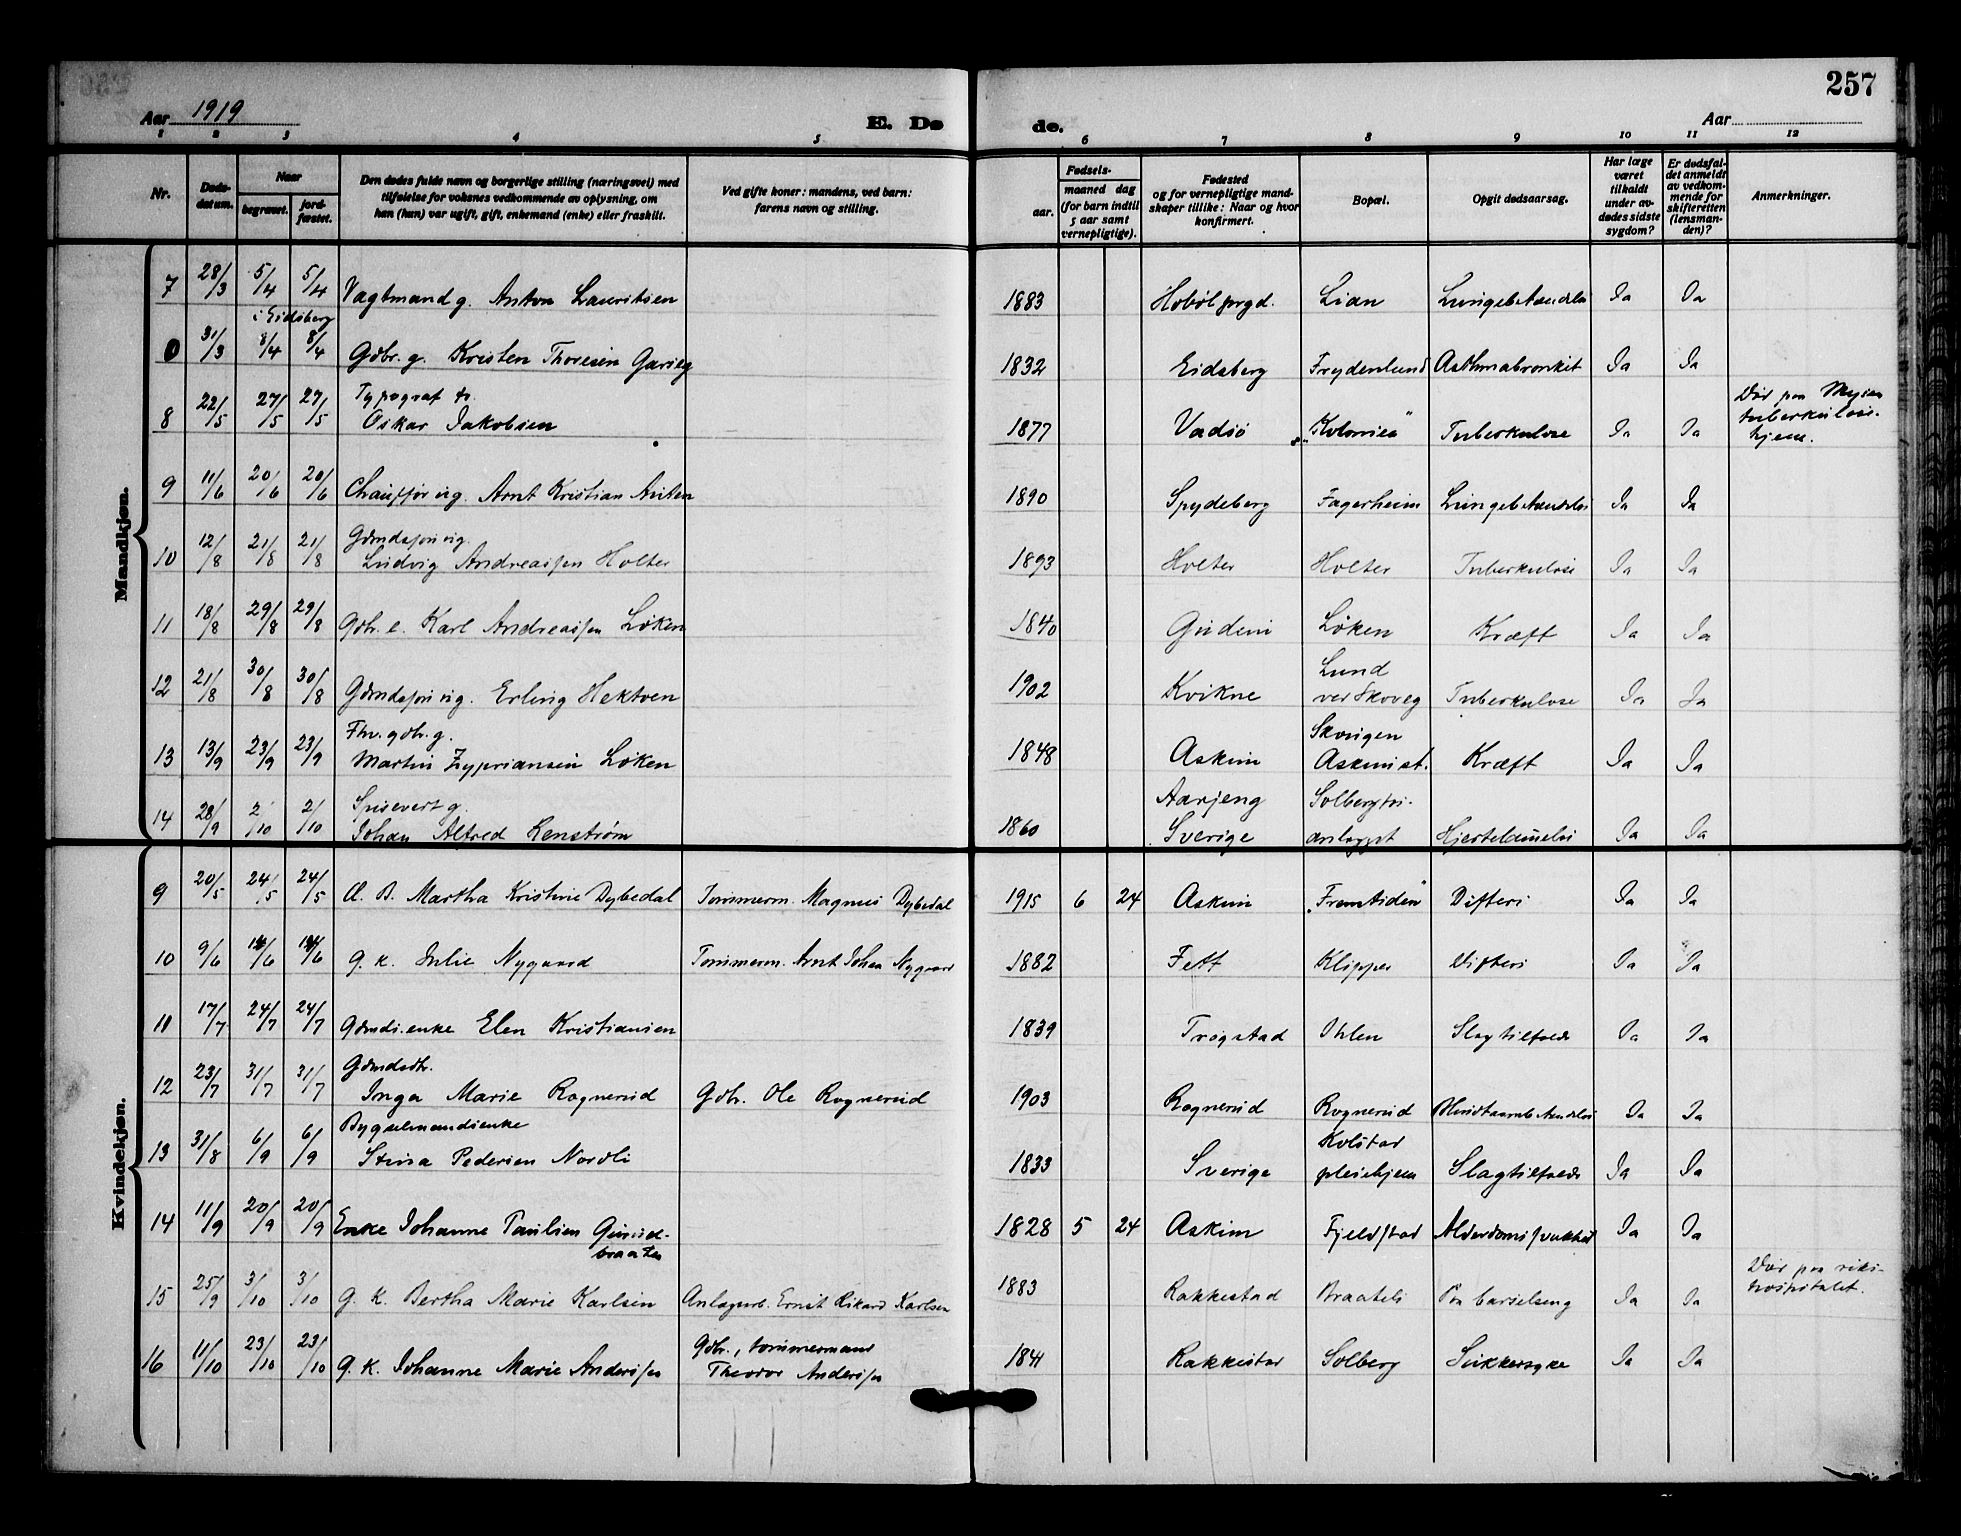 257
Aar 1919
E. Dø
de.
Aar
1 2 3 4 5 6 7 8 9 10 11 12
Nr.
Døds-
datum.
Naar
begravet.
jord-
fæstet.
Den dødes fulde navn og borgerlige stilling (næringsvei) med
tilføielse for voksnes vedkommende av oplysning, om
han (hun) var ugift, gift, enkemand (enke) eller fraskilt.
Ved gifte koner: mandens, ved barn:
farens navn og stilling.
Fødsels-
aar.
maaned dag
(for barn indtil
5 aar samt
vernepligtige).
Fødested
og for vernepligtige mand-
skaper tillike: Naar og hvor
konfirmert.
Bopæl.
Opgit dødsaarsag.
Har læge
været
tilkaldt
under av-
dødes sidste
sygdom?
Er dødsfal-
det anmeldt
av vedkom-
mende for
skifteretten
(lensman-
den)?
Anmerkninger.
Mandkjøn.
7 28/3 5/4 5/4 Vagtmand g. Anton Lauritsen 1883 Hobøl prgd. Lian Lungebetændelse Ja Ja
i Eidsberg
0 31/3 8/4 8/4 Gdbr. g. Kristen Thoresen Gar 1832 Eidsberg Frydenlund Asthmabronkit Ja Ja
Typograf
8 22/5 27/5 27/5 Oskar Jakobsen 1877 Vadsø „Kolonien“ Tuberkulose Ja Ja Død paa Mysen
tuberkulose-
hjem.
9 11/6 20/6 20/6 Chauffør ug. Arnt Kristian Anton 1890 Spydeberg Fagerheim Lungebetændelse Ja Ja
Gdmdssøn ug.
10 12/8 21/8 21/8 Ludvig Andreassen Holter 1893 Holter Holter Tuberkulose Ja Ja
11 18/8 29/8 29/8 Gdbr. e. Karl Andreassen Løken 1840 Gudem Løken Kræft Ja Ja
Lund
12 21/8 30/8 30/8 Gdmdssøn ug. Erling Hektoen 1902 Kvikne ved Skoveg Tuberkulose Ja Ja
Fhv. gdbr. g. Skougen
13 13/9 23/9 23/9 Martin Zyprianssen Løken 1848 Askim Askim st. Kræft Ja Ja
Spisevert g. Aarjeng Solbergfos-
14 28/9 2/10 2/10 Johan Alfred Lenstrøm 1860 Sverige anlægget Hjertelammelse Ja Ja
Kvindekjøn.
9 20/5 24/5 24/5 Æ. B. Martha Kristine Dybedal Tømmerm. Magnus Dybedal 1915 6 24 Askim „Fremtiden“ Difteri Ja Ja
10 9/6 14/6 14/6 G. k. Julie Nygaard Tømmerm. Arnt Johan Nygaard 1882 Fett Klippen Difteri Ja Ja
11 17/7 24/7 24/7 Gdmds.enke Elen Kristiansen 1839 Trøgstad Ohlen Slagtilfælde Ja Ja
Gdmdsdtr.
12 23/7 31/7 31/7 Inga Marie Rognerud Gdbr. Ole Rognerud 1903 Rognerud Rognerud Blindtarmbetændelse Ja Ja
Bygselmandsenke Kolstad
13 31/8 6/9 6/9 Stina Pedersen Nordli 1833 Sverige pleiehjem Slagtilfælde Ja Ja
14 11/9 20/9 20/9 Enke Johanne Paulsen Grimsd-
braaten 1828 5 24 Askim Fjeldstad Alderdomssvakhed Ja Ja
15 25/9 3/10 3/10 G. K. Bertha Marie Karlsen Anlægsarb. Ernst Rikard Karlsen 1883 Rakkestad Braateli Paa barselseng Ja Ja Død paa riks-
hospitalet.
Gdbr., tømmermand
16 11/10 23/10 23/10 G. K. Johanne Marie Anderssen Theodor Anderssen 1841 Rakkestad Solberg Sukkersyke Ja Ja